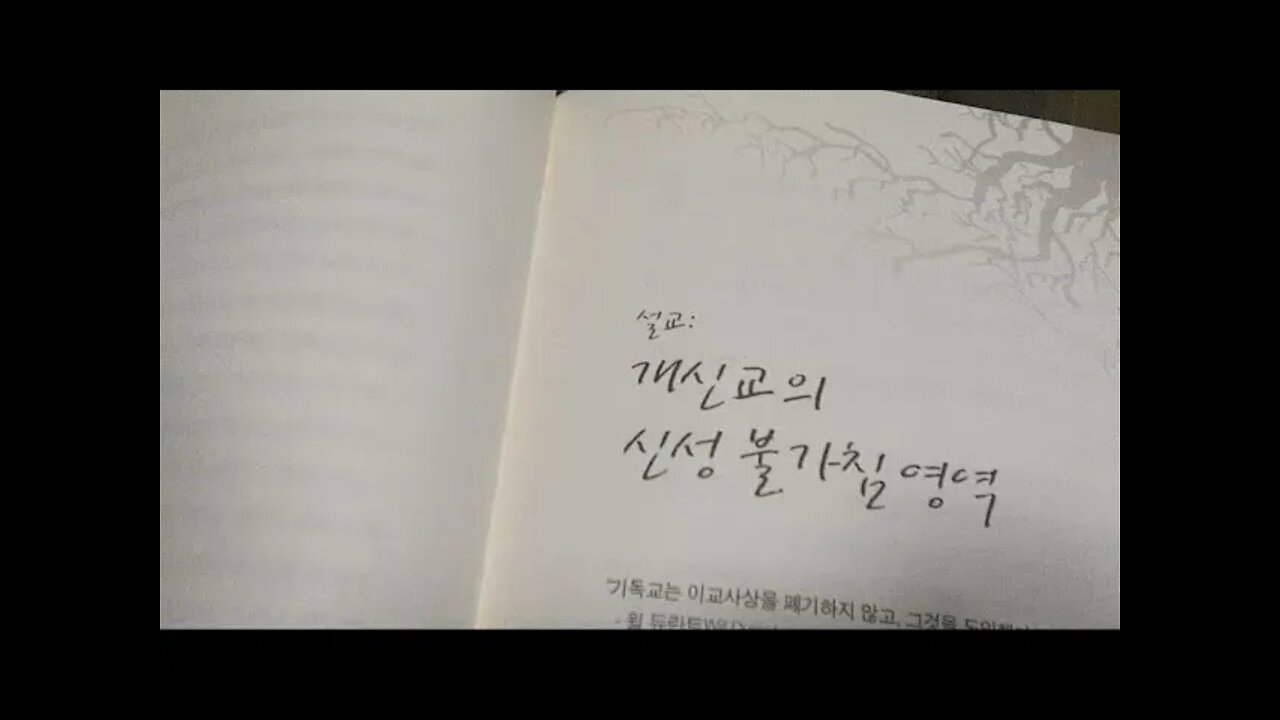 설교:
개신교의
신성 불가침 영역
"기독교는 이교사상을 폐기하지 않고, 그것을
- 윌 듀란트